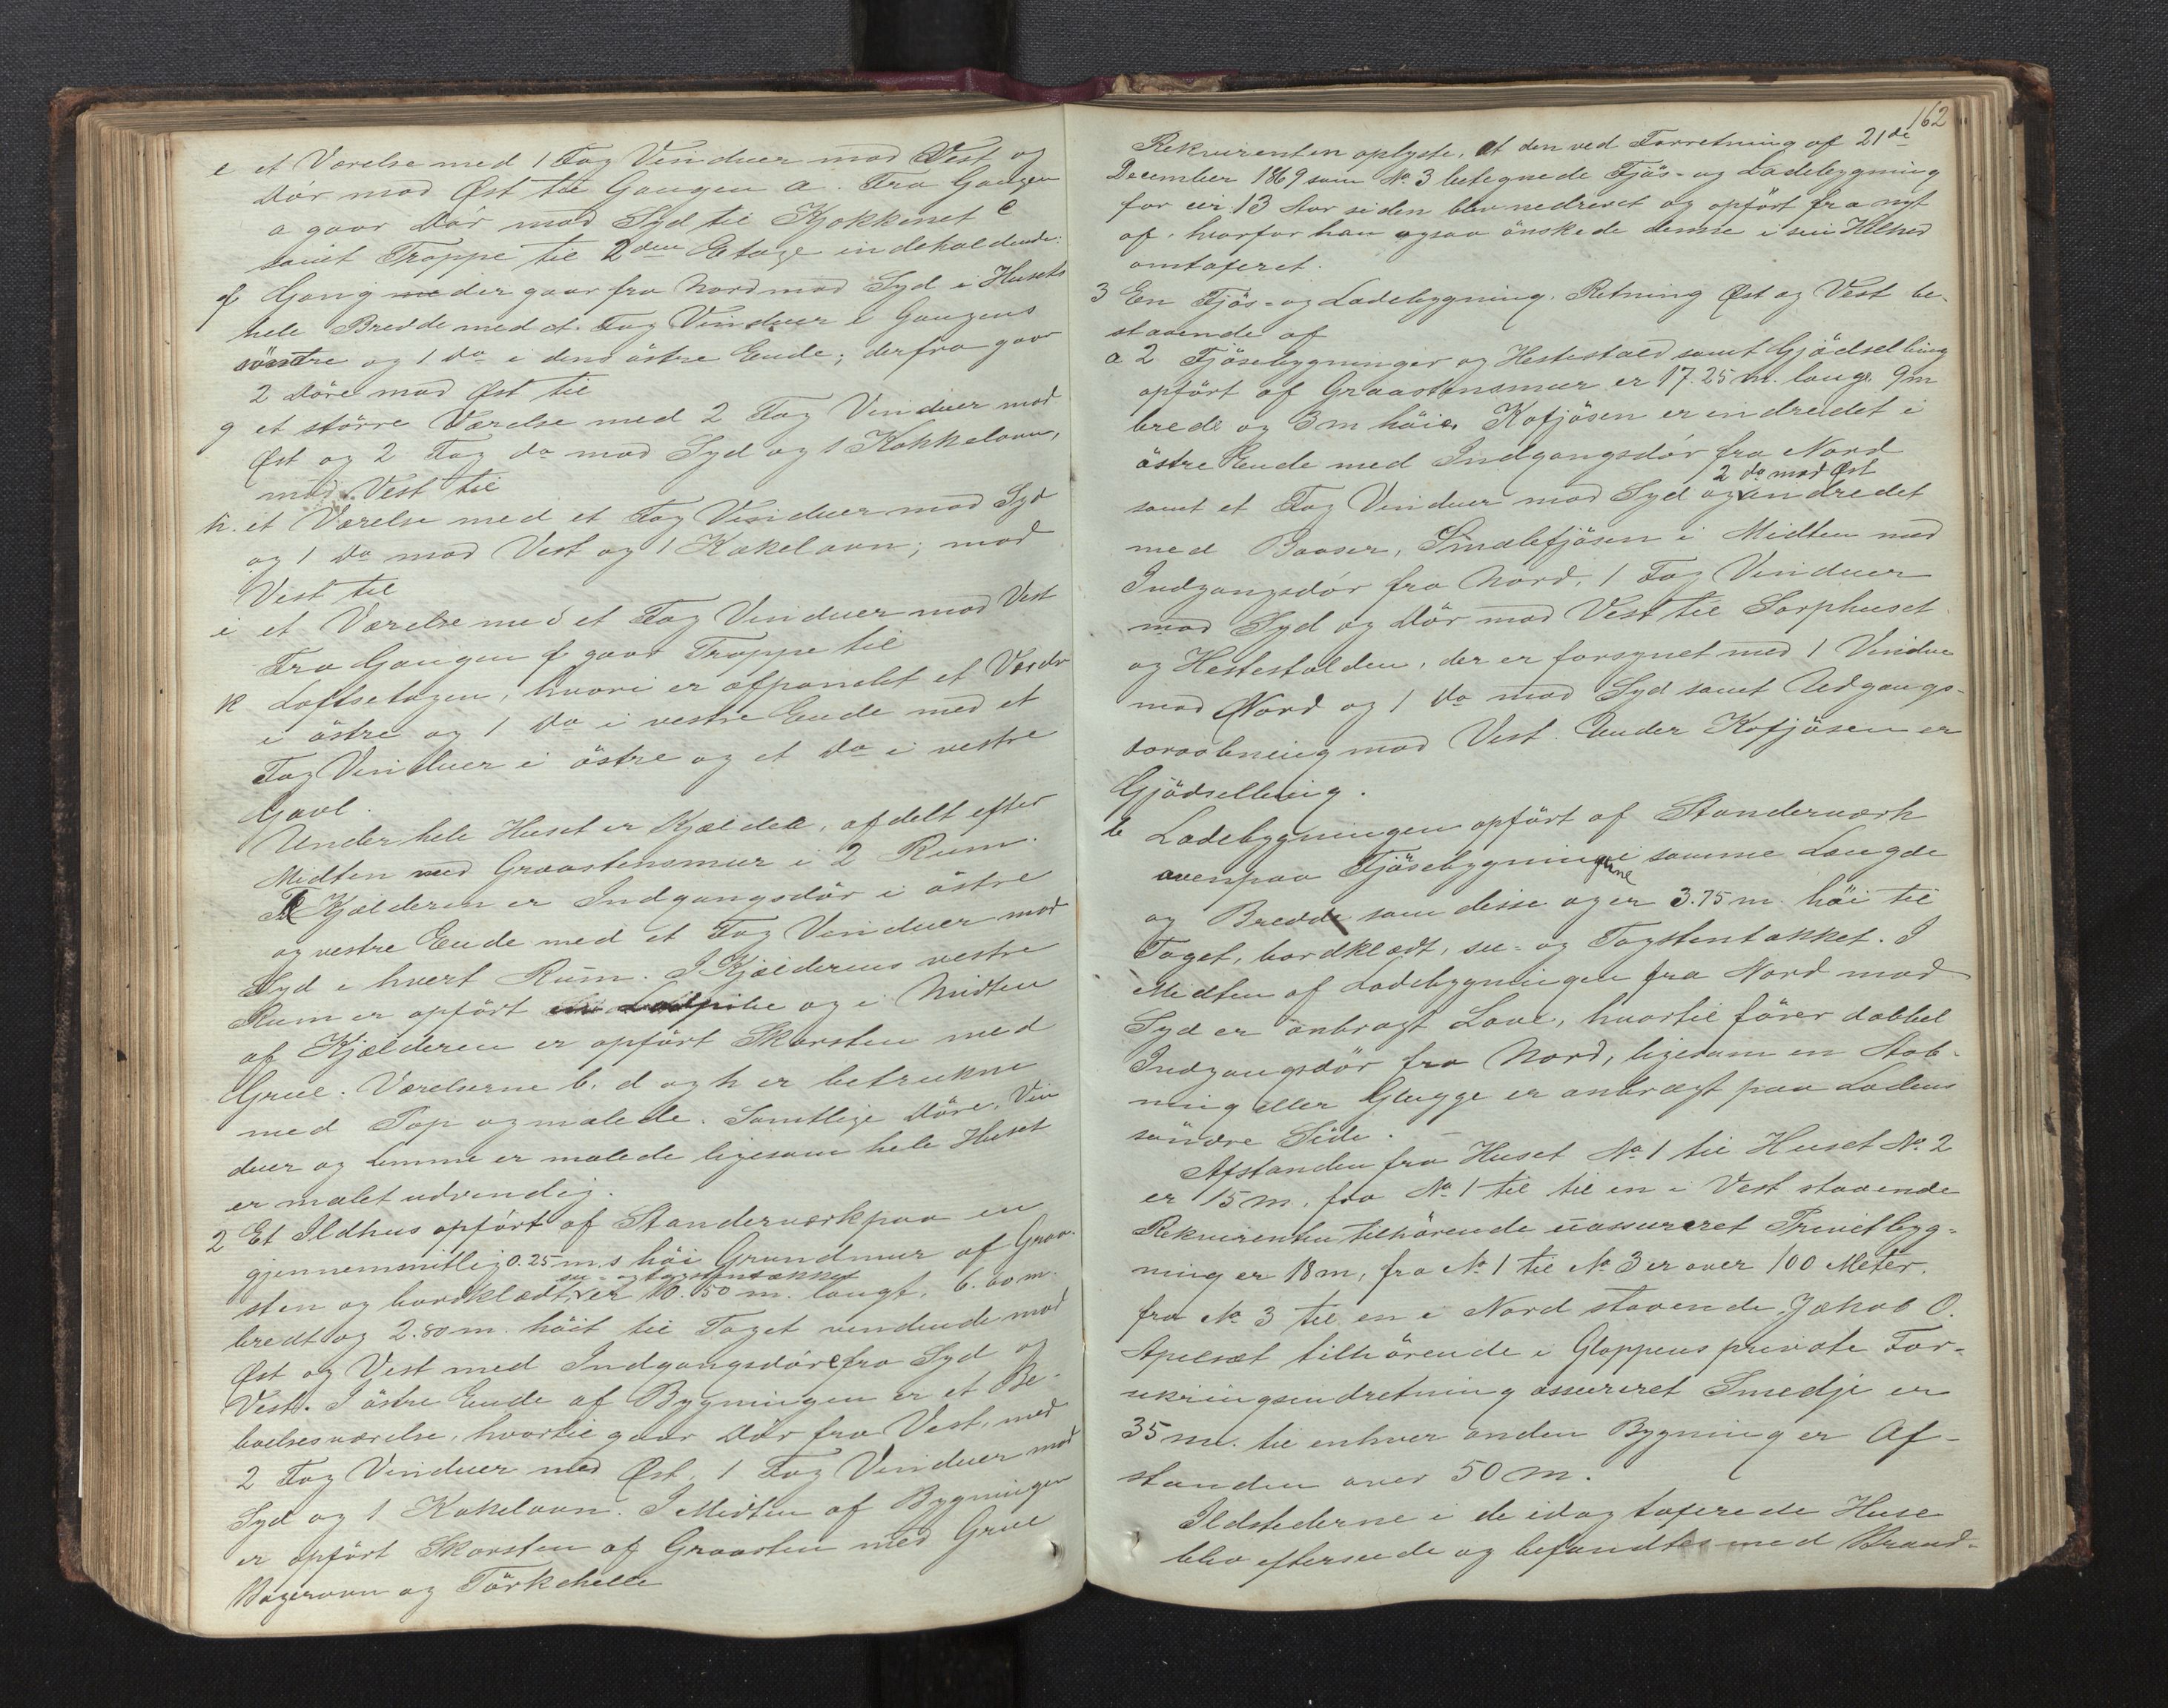 e et Værelse med 1 Fag Vinduer mod Vest og
Dör mod Øst til Gangen a. Fra Gangen
a gaar Dör mod Syd til Kjøkkenet c
samt Trappe til 2den Etage indeholdende:
f Gang der gaar fra Nord mod Syd i Husets
hele Bredde med et Fag Vinduer i Gangens
söndre og 1 do i dens östre Ende; derfra gaar
2 Döre mod Øst til
g et större Værelse med 2 Fag Vinduer mod
Øst og 2 Fag do mod Syd og 1 Kakkelovn,
mod Vest til
h. et Værelse med et Fag Vinduer mod Syd
og 1 do mod Vest og 1 Kakelovn; mod
Vest til
i et Værelse med et Fag Vinduer mod Vest
Fra Gangen f gaar Trappe til
k Loftsetagen, hvori er afpanelet et Værelse
i östre og 1 do i vestre Ende med et
Fag Vinduer i östre og et do i vestre
Gavl.
Under hele Huset er Kjælder, afdelt efter
Midten med Graastensmur i 2 Rum.
Til Kjælderen er Indgangsdör i östre
og vestre Ende med et Fag Vinduer mod
Syd i hvert Rum. I Kjælderens vestre
Rum er opfört og i Midten
af Kjælderen er opfört Skorsten med
Grue. Værelserne b. d og h er betrukne
med Tap og malede. Samtlige Döre, Vin
duer og Lemme er malede ligesom hele Huset
er malet udvendig.
2 Et Ildhus opfört af Standerværk paa en
gjennemsnitlig 0.25 m.s höi Grundmur af Graa-
su- og tagstentækket
sten og bordklædt, er 10.50 m. langt, 6.00 m.
bredt og 2.80 m. höit til Taget vendende mod
Øst og Vest med Indgangsdöre fra Syd og
Vest. I östre Ende af Bygningen er et Be-
boelsesværelse, hvortil gaar Dör fra Vest, med
2 Fag Vinduer mod Øst, 1 Fag Vinduer mod
Syd og 1 Kakelovn. I Midten af Bygningen
er opfört Skorsten af Graasten med Grue
Bagerovn og Törkehelle
162
Rekvirenten oplyste, at den ved Forretning af 21de
December 1869 som No. 3 betegnede Fjös- og Ladebygning
for cir 13 Aar siden blev nedrevet og opfört fra nyt
af, hvorfor han ogsaa önskede denne i sin Helhed
omtaxeret.
3 En Fjös- og Ladebygning. Retning Øst og Vest be-
staaende af
a 2 Fjösebygninger og Hestestald samt Gjödselbing
opfört af Graastensmur er 17.25 m. lange 9 m
brede og 3 m höie. Kofjösen er indredet i
östre Ende med Indgangsdör fra Nord
2 do mod Øst
samt et Fag Vinduer mod Syd og indredet
med Baaser, Smalefjösen i Midten med
Indgangsdör fra Nord, 1 Fag Vinduer
mod Syd og Dör mod Vest til Sorphuset
og Hestestalden, der er forsynet med 1 Vindue
mod Nord og 1 do mod Syd samt Udgangs-
doraabning mod Vest. Under Kofjösen er
Gjödselbing.
b Ladebygningen opfört af Standerværk
ovenpaa Fjösebygningerne i samme Længde
og Bredde som disse og er 3.75 m. höi til
Taget, bordklædt, su- og Tagstentækket. I
Midten af Ladebygningen fra Nord mod
Syd er anbragt Laave, hvortil förer dobbel
Indgangsdör fra Nord, ligesom en Aab-
ning eller Glugge er anbragt paa Ladens
söndre Side.
Afstanden fra Huset No. 1 til Huset No. 2
er 15 m. fra No. 1 til til en i Vest staaende
Rekvirenten tilhörende uassureret Privetbyg-
ning er 18 m, fra No. 1 til No. 3 er over 100 Meter,
fra No. 3 til en i Nord staaende Jakob O.
Apelsæt tilhörende i Gloppens private For-
sikringsindretning assureret Smedje er
35 m. til enhver anden Bygning er Af-
standen over 50 m.
Ildstederne i de idag taxerede Huse
blev efterseede og befandtes med Brand-